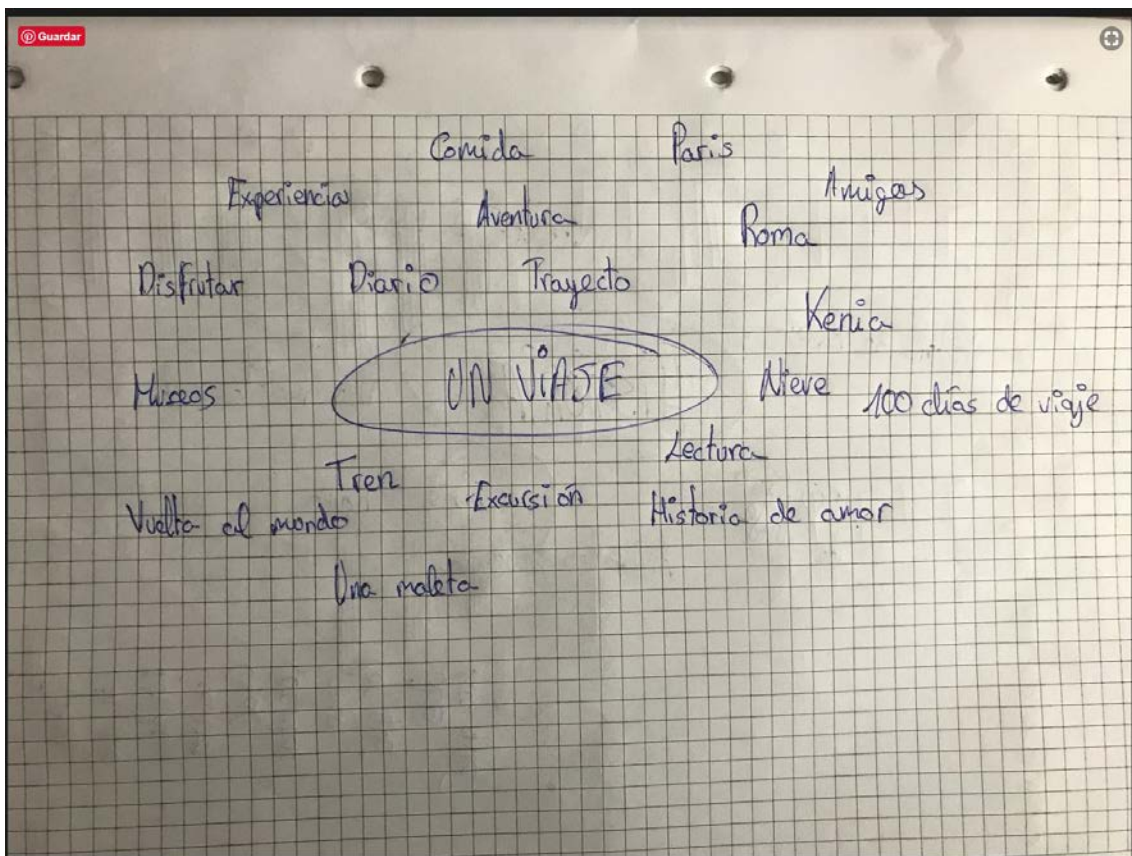 Guardar
Comida Paris
Experiencia Aventura Amigos
Roma
Disfrutar Diario Trayecto
Kenia
Museos UN VIAJE Nieve 100 días de viaje
Lectura
Tren
Vuelta al mundo Excursión Historia de amor
Una maleta